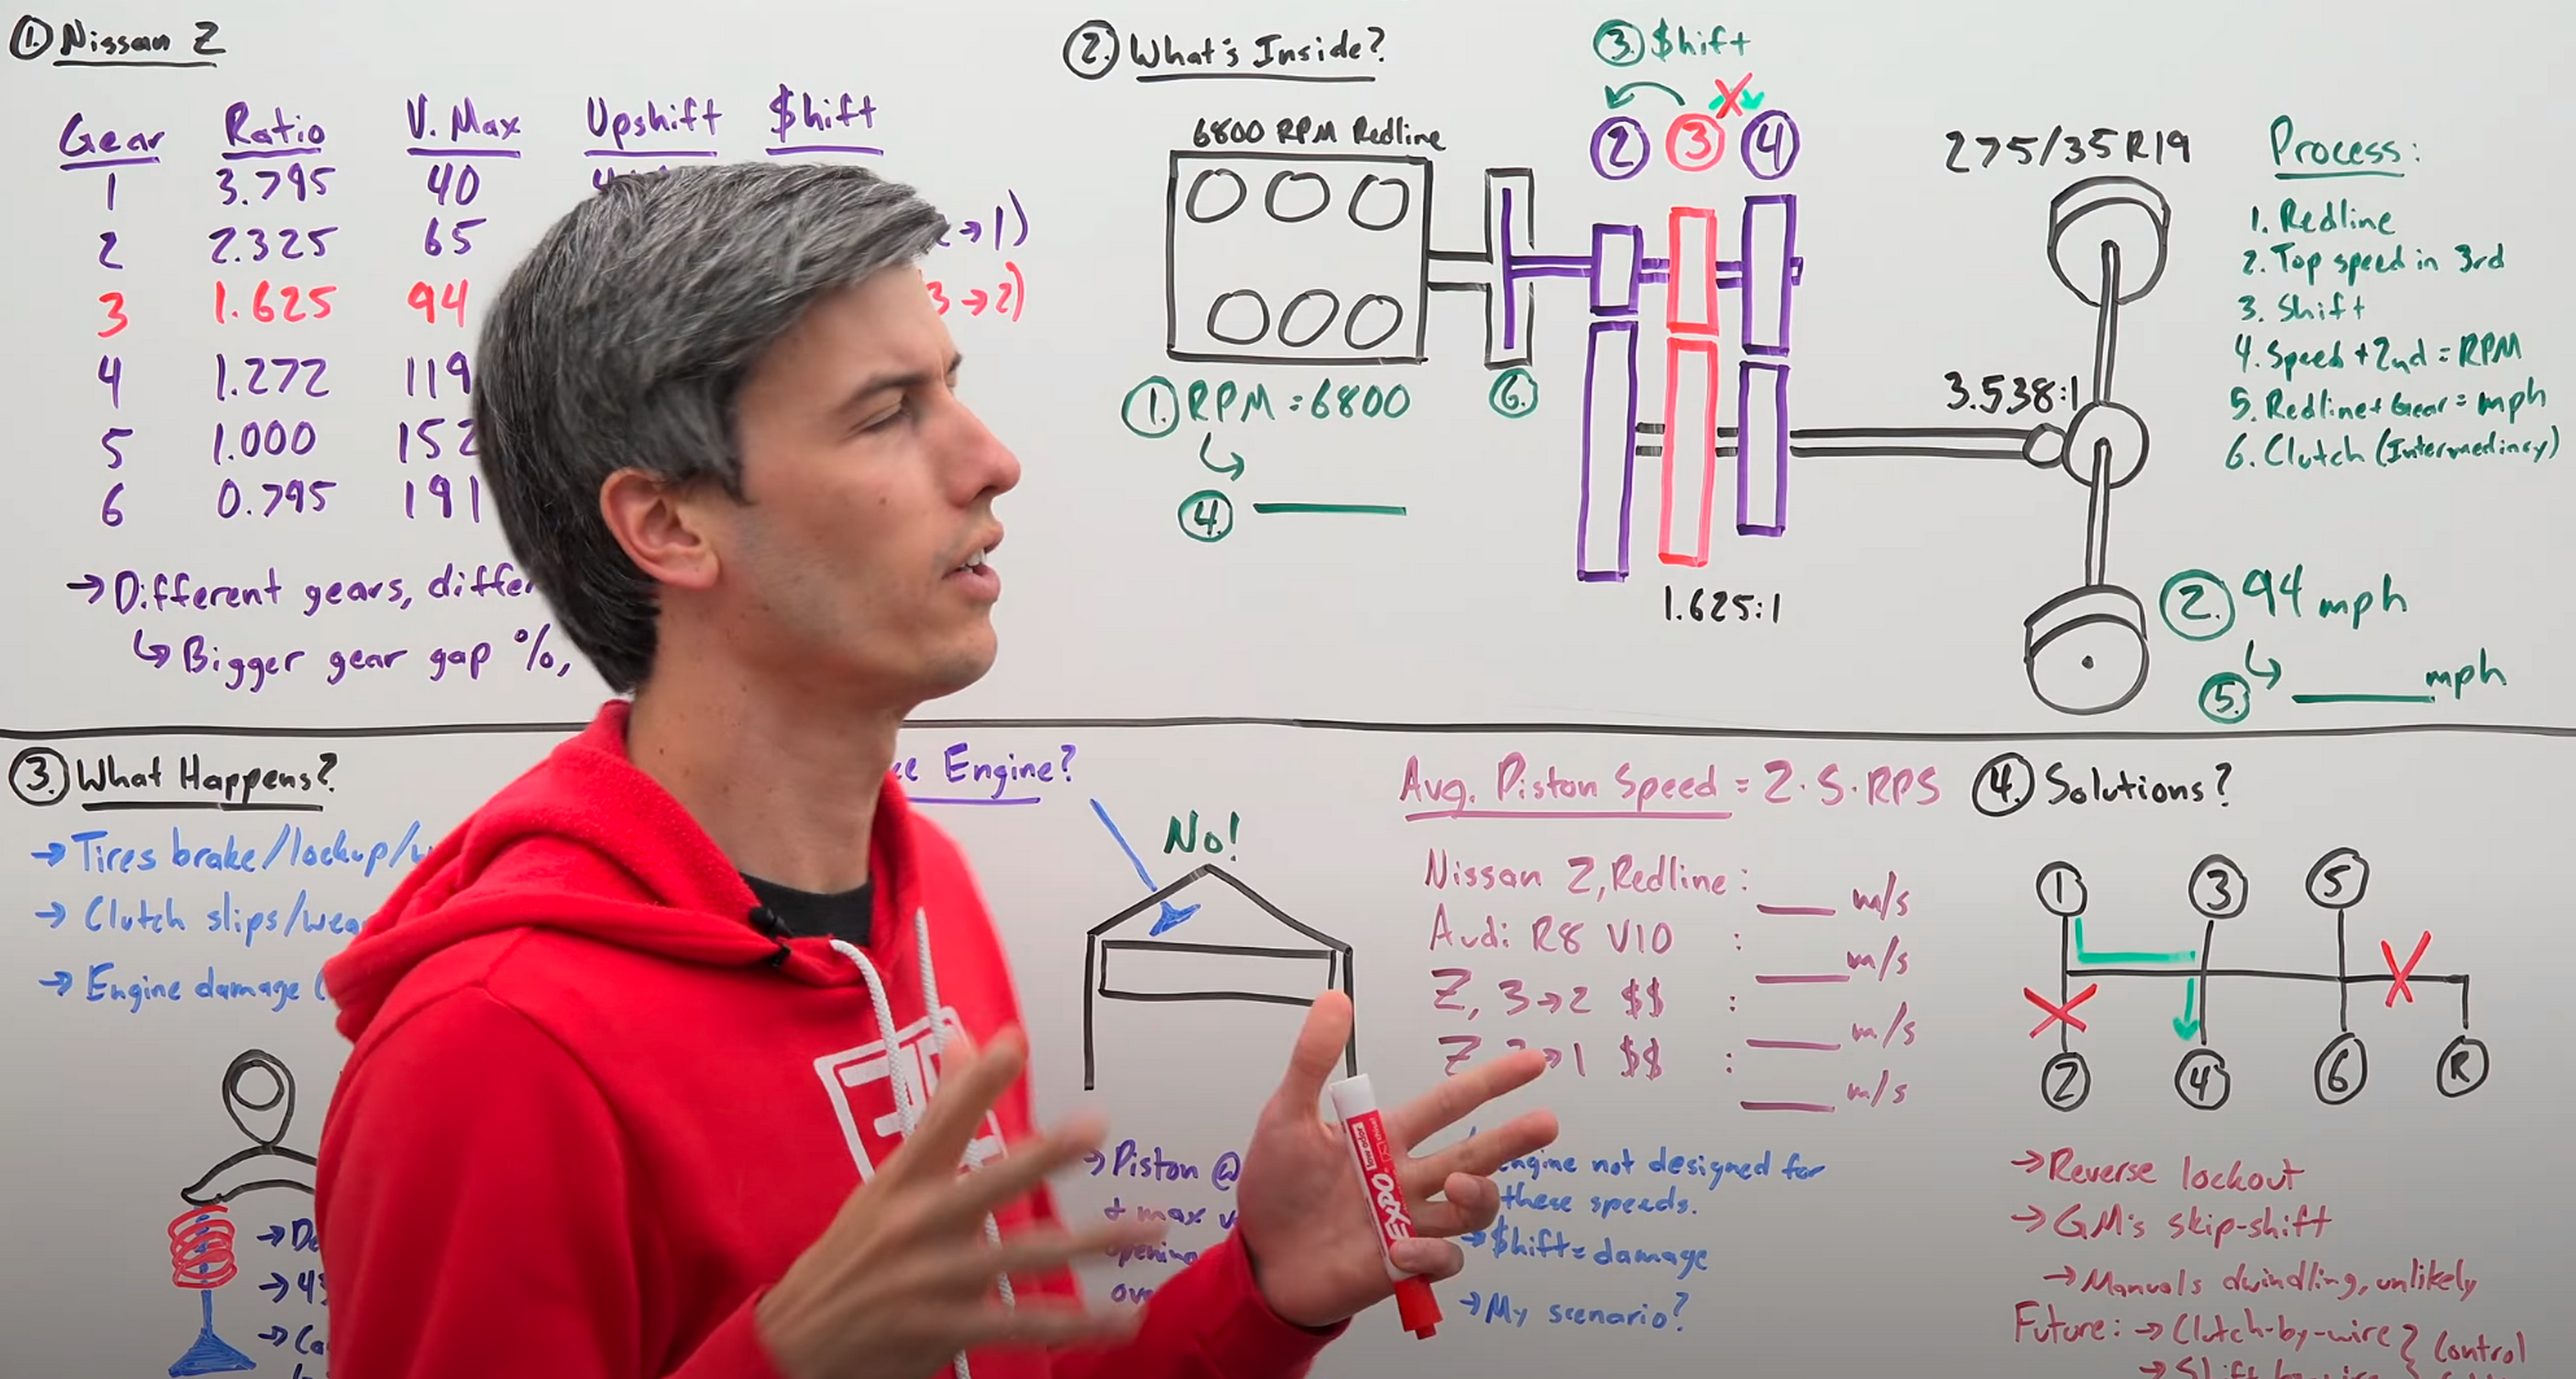 ① Nissan Z
Gear Ratio V. Max Upshift $hift
1 3.795 40
2 2.325 65 → 1)
3 1.625 94 3 → 2)
4 1.272 119
5 1.000 152
6 0.795 191
→ Different gears,
↳ Bigger gear gap %,
② What's Inside?
③ $hift
6800 RPM Redline
② ③ ④
① RPM = 6800
↳
④
⑥
1.625:1
275/35 R19
3.538:1
② 94 mph
↳
⑤ mph
Process:
1. Redline
2. Top speed in 3rd
3. Shift
4. Speed + 2nd = RPM
5. Redline + Gear = mph
6. Clutch (Intermediary)
③ What Happens?
→ Tires brake/lockup/
→ Clutch slips/
→ Engine damage (
Engine?
No!
→ Piston @
+ max
Avg. Piston Speed = 2·S·RPS
Nissan Z, Redline: m/s
Audi R8 V10 : m/s
Z, 3→2 $$ : m/s
Z, →1 $$ : m/s
Engine not designed for
these speeds.
→ $hift = damage
→ My scenario?
EXPO
low odor
④ Solutions?
① ③ ⑤
② ④ ⑥ Ⓡ
→ Reverse lockout
→ GM's skip-shift
→ Manuals dwindling, unlikely
Future: → Clutch-by-wire } Control